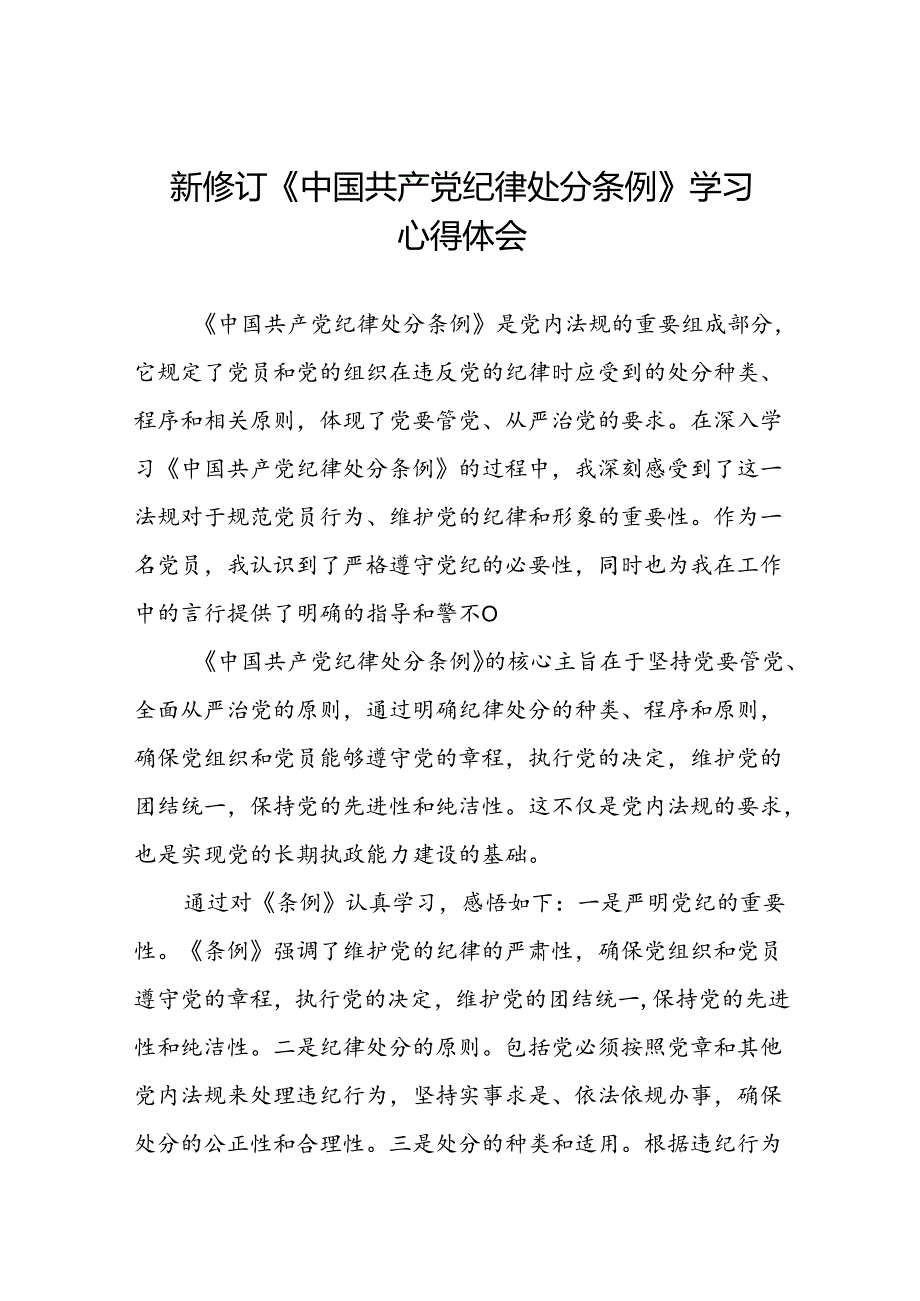 新修订《中国共产党纪律处分条例》学习
心得体会
《中国共产党纪律处分条例》是党内法规的重要组成部分，
它规定了党员和党的组织在违反党的纪律时应受到的处分种类、
程序和相关原则，体现了党要管党、从严治党的要求。在深入学
习《中国共产党纪律处分条例》的过程中，我深刻感受到了这一
法规对于规范党员行为、维护党的纪律和形象的重要性。作为一
名党员，我认识到了严格遵守党纪的必要性，同时也为我在工作
中的言行提供了明确的指导和警不O
《中国共产党纪律处分条例》的核心主旨在于坚持党要管党、
全面从严治党的原则，通过明确纪律处分的种类、程序和原则，
确保党组织和党员能够遵守党的章程，执行党的决定，维护党的
团结统一，保持党的先进性和纯洁性。这不仅是党内法规的要求，
也是实现党的长期执政能力建设的基础。
通过对《条例》认真学习，感悟如下：一是严明党纪的重要
性。《条例》强调了维护党的纪律的严肃性，确保党组织和党员
遵守党的章程，执行党的决定，维护党的团结统一,保持党的先进
性和纯洁性。二是纪律处分的原则。包括党必须按照党章和其他
党内法规来处理违纪行为，坚持实事求是、依法依规办事，确保
处分的公正性和合理性。三是处分的种类和适用。根据违纪行为